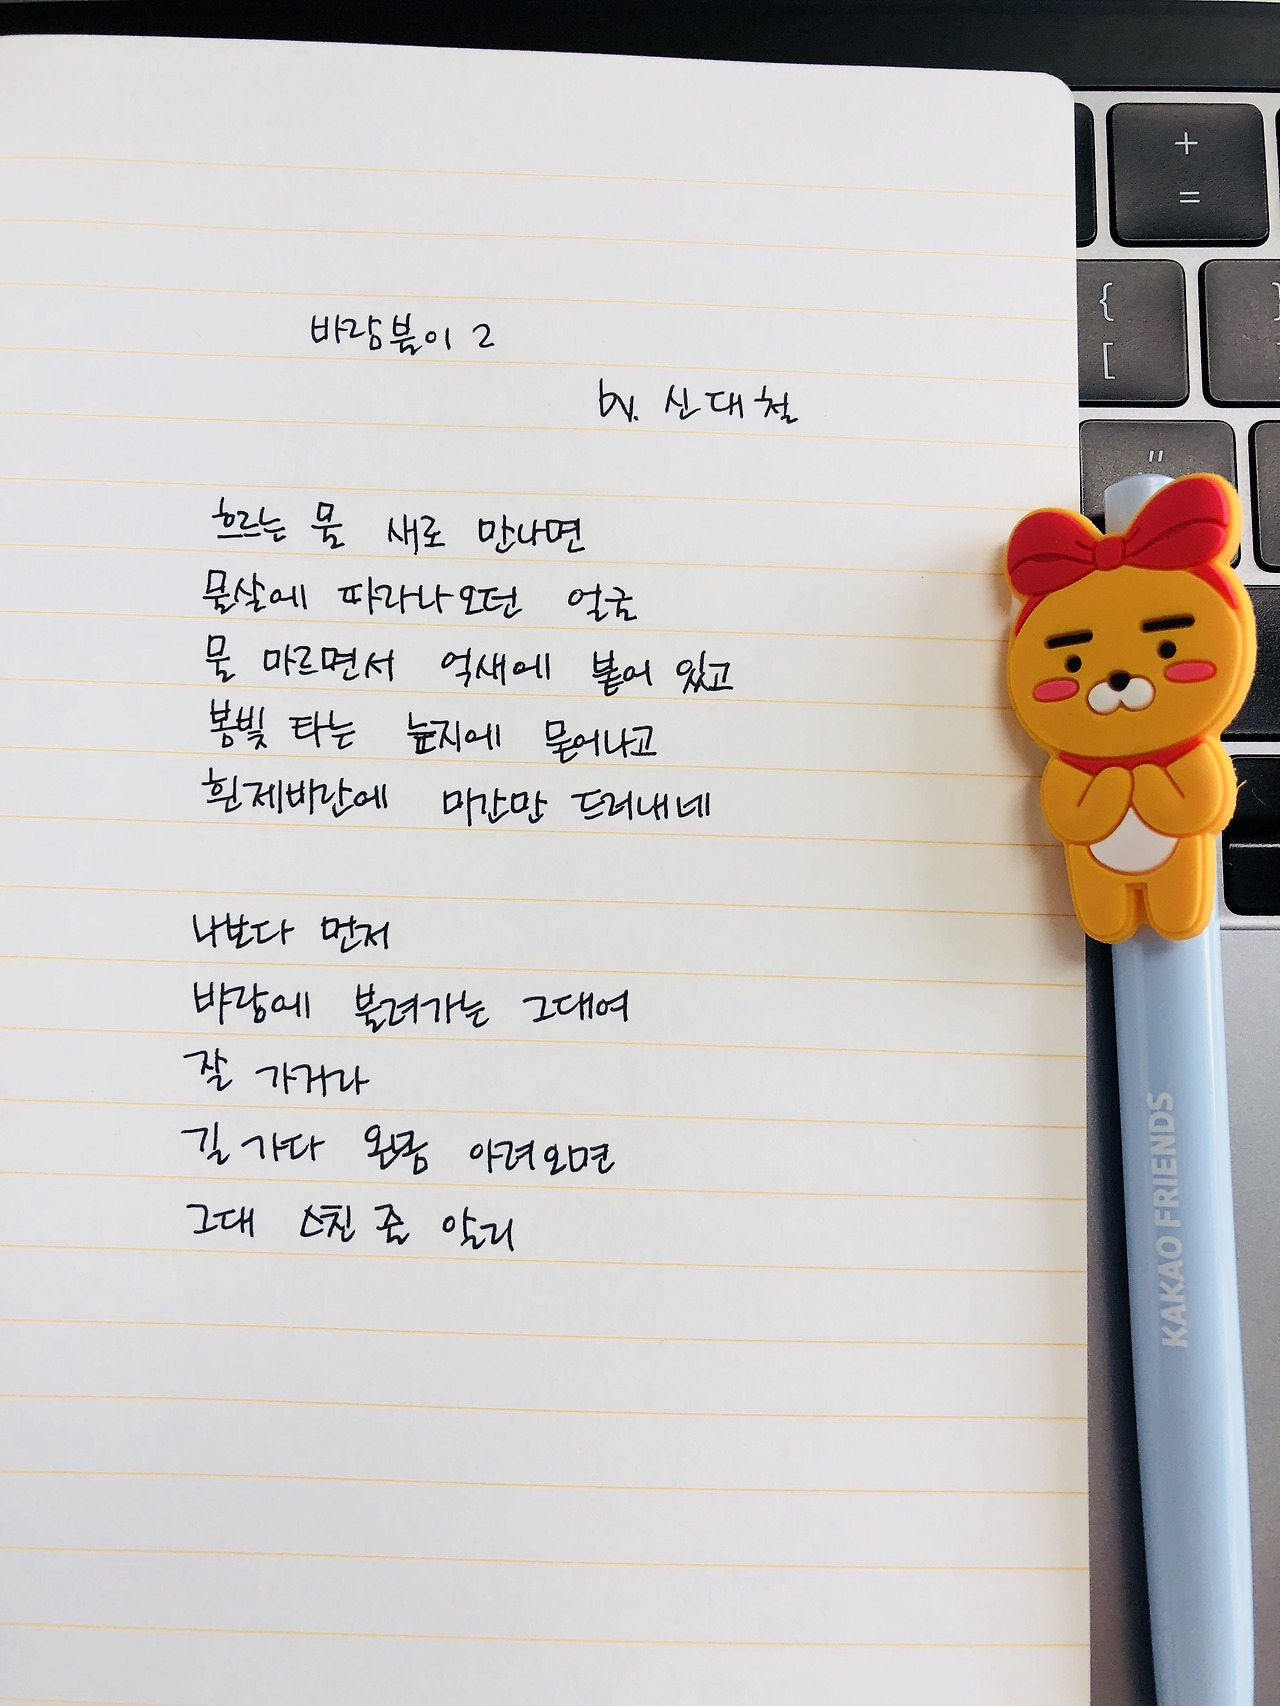 바람불이 2
by. 신대철
흐르는 물 새로 만나면
물살에 따라나오던 얼굴
물 마르면서 억새에 붙어 있고
봄빛 타는 늪지에 묻어나고
흰제비란에 마간만 드러내네
나보다 먼저
바람에 불려가는 그대여
잘 가거라
길 가다 왼쪽 아려오면
그대 스친 줄 알리
+
=
{
[
}
"
KAKAO FRIENDS